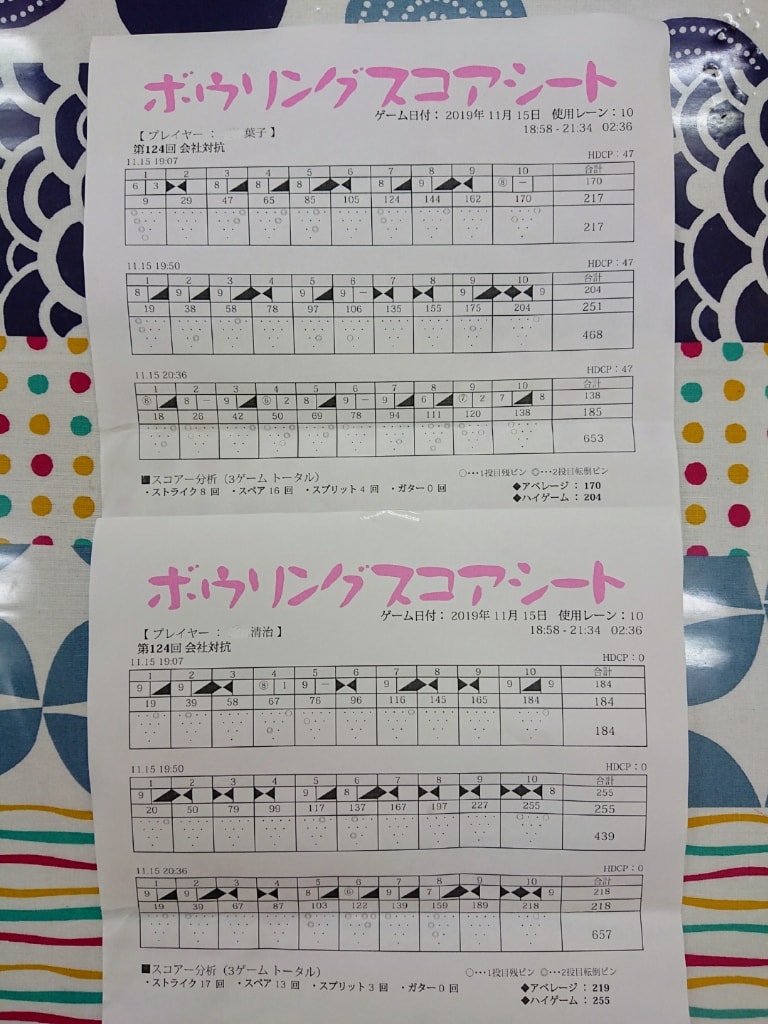 ボウリングスコアシート
ゲーム日付： 2019年 11月 15日　使用レーン：10
【 プレイヤー ： 葉子 】 18:58 - 21:34 02:36
第124回 会社対抗
11.15 19:07 HDCP：47
1 2 3 4 5 6 7 8 9 10 合計
6 3 8 8 8 8 9 ⑧ － 170
9 29 47 65 85 105 124 144 162 170 217
217
11.15 19:50 HDCP：47
1 2 3 4 5 6 7 8 9 10 合計
8 9 9 9 9 － 8 9 9 204
19 38 58 78 97 106 135 155 175 204 251
468
11.15 20:36 HDCP：47
1 2 3 4 5 6 7 8 9 10 合計
⑧ 8 － 9 ⑥ 2 8 9 － 9 6 ⑦ 2 7 8 138
18 26 42 50 69 78 94 111 120 138 185
653
■スコアー分析（3ゲーム トータル） ○･･･1投目残ピン ◎･･･2投目転倒ピン
・ストライク 8 回 ・スペア 16 回 ・スプリット 4 回 ・ガター 0 回 ◆アベレージ ： 170
◆ハイゲーム ： 204
ボウリングスコアシート
ゲーム日付： 2019年 11月 15日　使用レーン：10
【 プレイヤー ： 清治 】 18:58 - 21:34 02:36
第124回 会社対抗
11.15 19:07 HDCP：0
1 2 3 4 5 6 7 8 9 10 合計
9 9 ⑧ 1 9 － 9 9 9 184
19 39 58 67 76 96 116 145 165 184 184
184
11.15 19:50 HDCP：0
1 2 3 4 5 6 7 8 9 10 合計
9 9 8 8 255
20 50 79 99 117 137 167 197 227 255 255
439
11.15 20:36 HDCP：0
1 2 3 4 5 6 7 8 9 10 合計
9 9 8 ⑥ 9 7 9 218
19 39 67 87 103 122 139 159 189 218 218
657
■スコアー分析（3ゲーム トータル） ○･･･1投目残ピン ◎･･･2投目転倒ピン
・ストライク 17 回 ・スペア 13 回 ・スプリット 3 回 ・ガター 0 回 ◆アベレージ ： 219
◆ハイゲーム ： 255